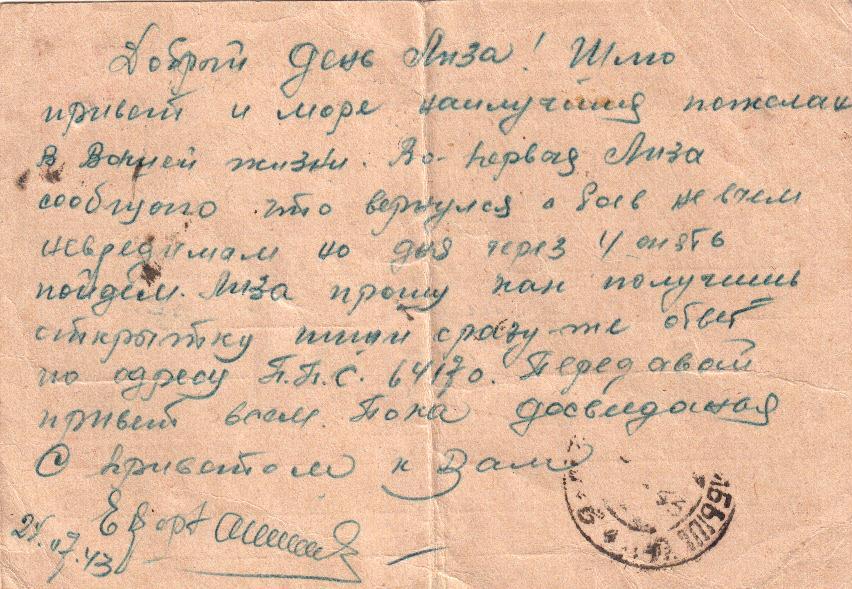 Добрый день Лиза! Шлю
привет и море наилучшия пожелан
в Вашей жизни. Во-первая Лиза
сообщаю что вернулся с боев не вчем
невредимам но дня через 4 опять
пойдём. Лиза прошу как получишь
открытку пиши сразу-же ответ
по адресу П.П.С. 64170. Передавай
привет всем. Пока досвиданья
С приветом к Вам
Егор
25.07.43